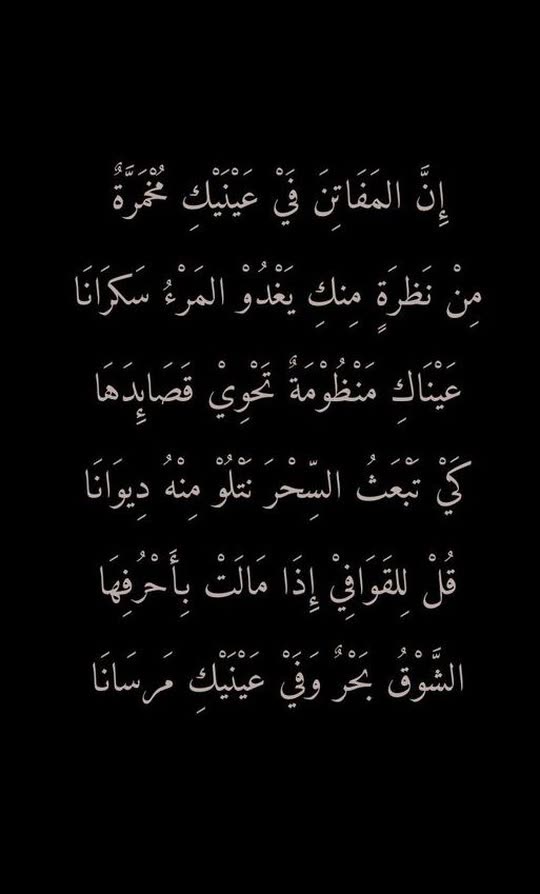 إِنَّ المَفَاتِنَ فَيْ عَيْنَيْكِ مُخْمَرَّةٌ
مِنْ نَظرَةٍ مِنكِ يَغْدُوْ المَرْءُ سَكرَانَا
عَيْنَاكِ مَنْظُوْمَةٌ تَحْوِيْ قَصَايِٕدَهَا
كَيْ تَبْعَثُ السِّحْرَ نَتْلُوْ مِنْهُ دِيوَانَا
قُلْ لِلقَوَافِيْ إِذَا مَالَتْ بِأَحْرُفِهَا
الشَّوْقُ بَحْرٌ وَفَيْ عَيْنَيْكِ مَرسَانَا